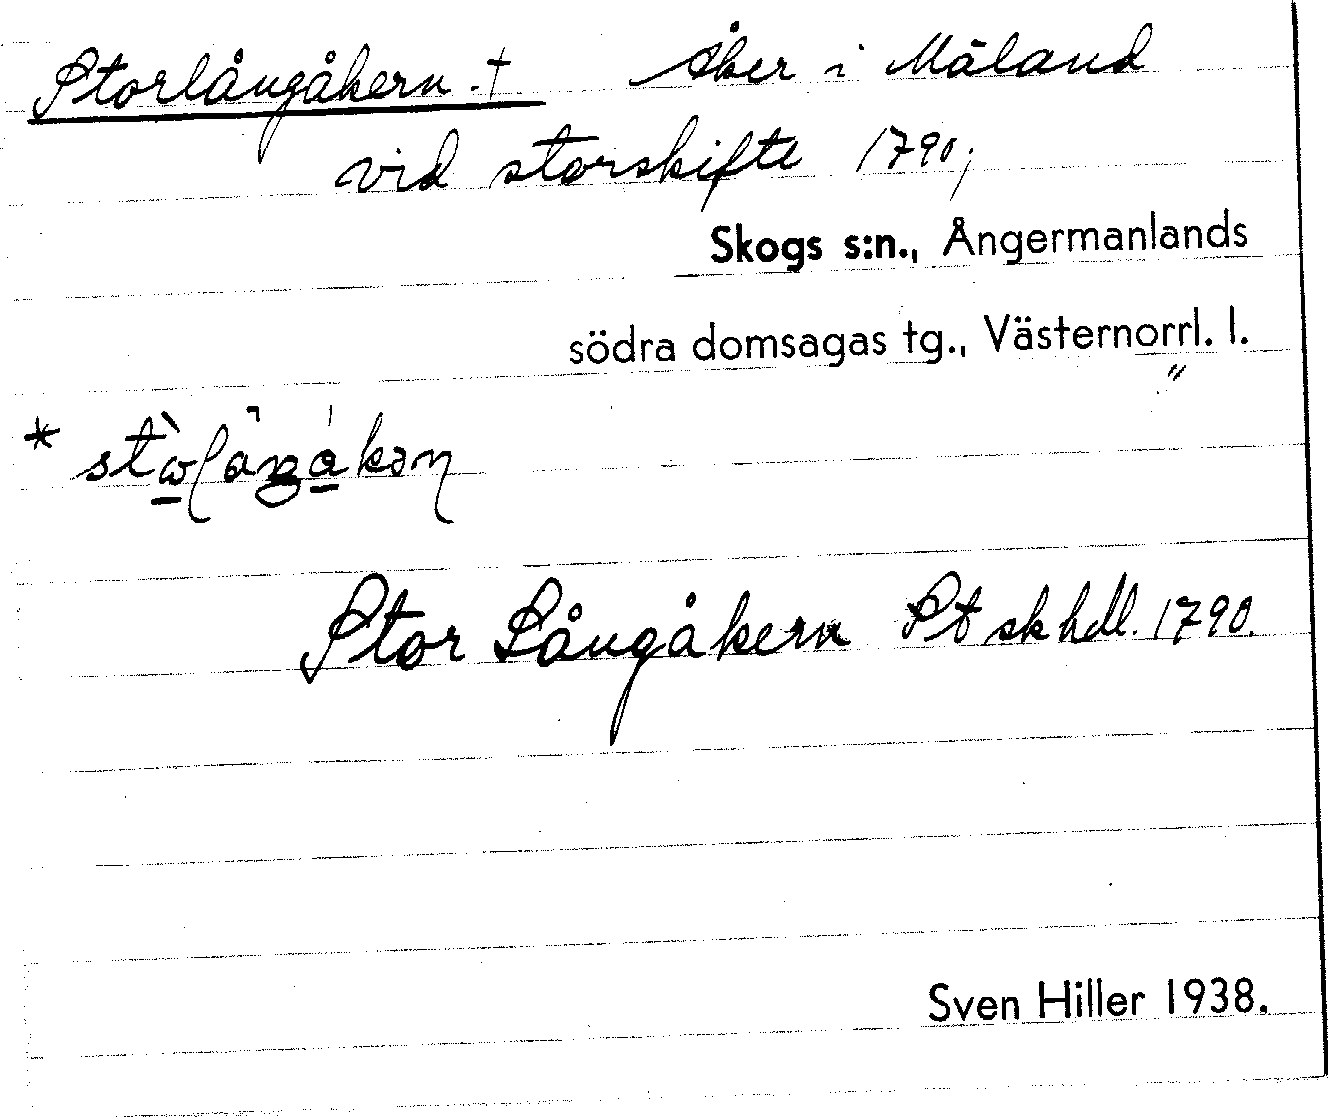 Storlångåkern. † Åker i Mäland
vid storskifte 1790;
Skogs s:n., Ångermanlands
södra domsagas tg., Västernorrl. l.
"
*
Stor Långåkern St sk hdl. 1790.
Sven Hiller 1938.